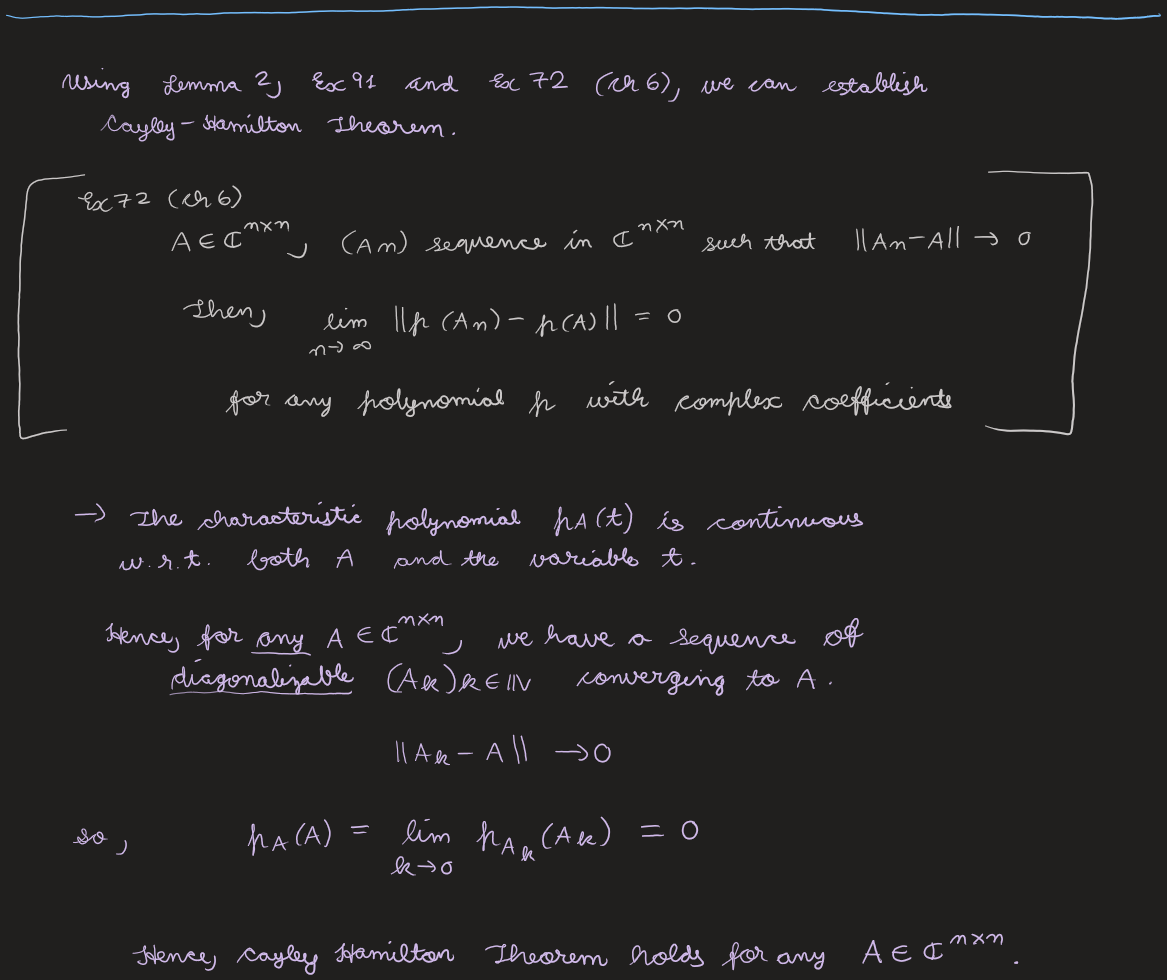 Using Lemma 2, Ex 91 and Ex 72 (Ch 6), we can establish
Cayley-Hamilton Theorem.
Ex 72 (Ch 6)
A ∈ ℂ^{n×n}, (A_n) sequence in ℂ^{n×n} such that ||A_n - A|| → 0
Then, lim_{n→∞} ||p(A_n) - p(A)|| = 0
for any polynomial p with complex coefficients
→ The characteristic polynomial p_A(t) is continuous
w.r.t. both A and the variable t.
Hence, for any A ∈ ℂ^{n×n}, we have a sequence of
diagonalizable (A_k)_{k∈ℕ} converging to A.
||A_k - A|| → 0
so, p_A(A) = lim_{k→0} p_{A_k}(A_k) = 0
Hence, Cayley Hamilton Theorem holds for any A ∈ ℂ^{n×n}.